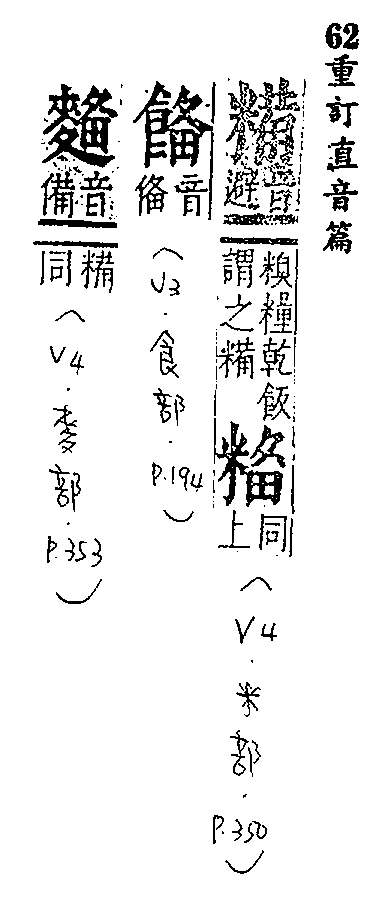 62重訂直音篇
糒 音避 糗糧乾飯謂之糒
同上
(V4.米部.P.350)
音俻
(V3.食部.P.194)
音備 糒同
(V4.麥部.P.353)